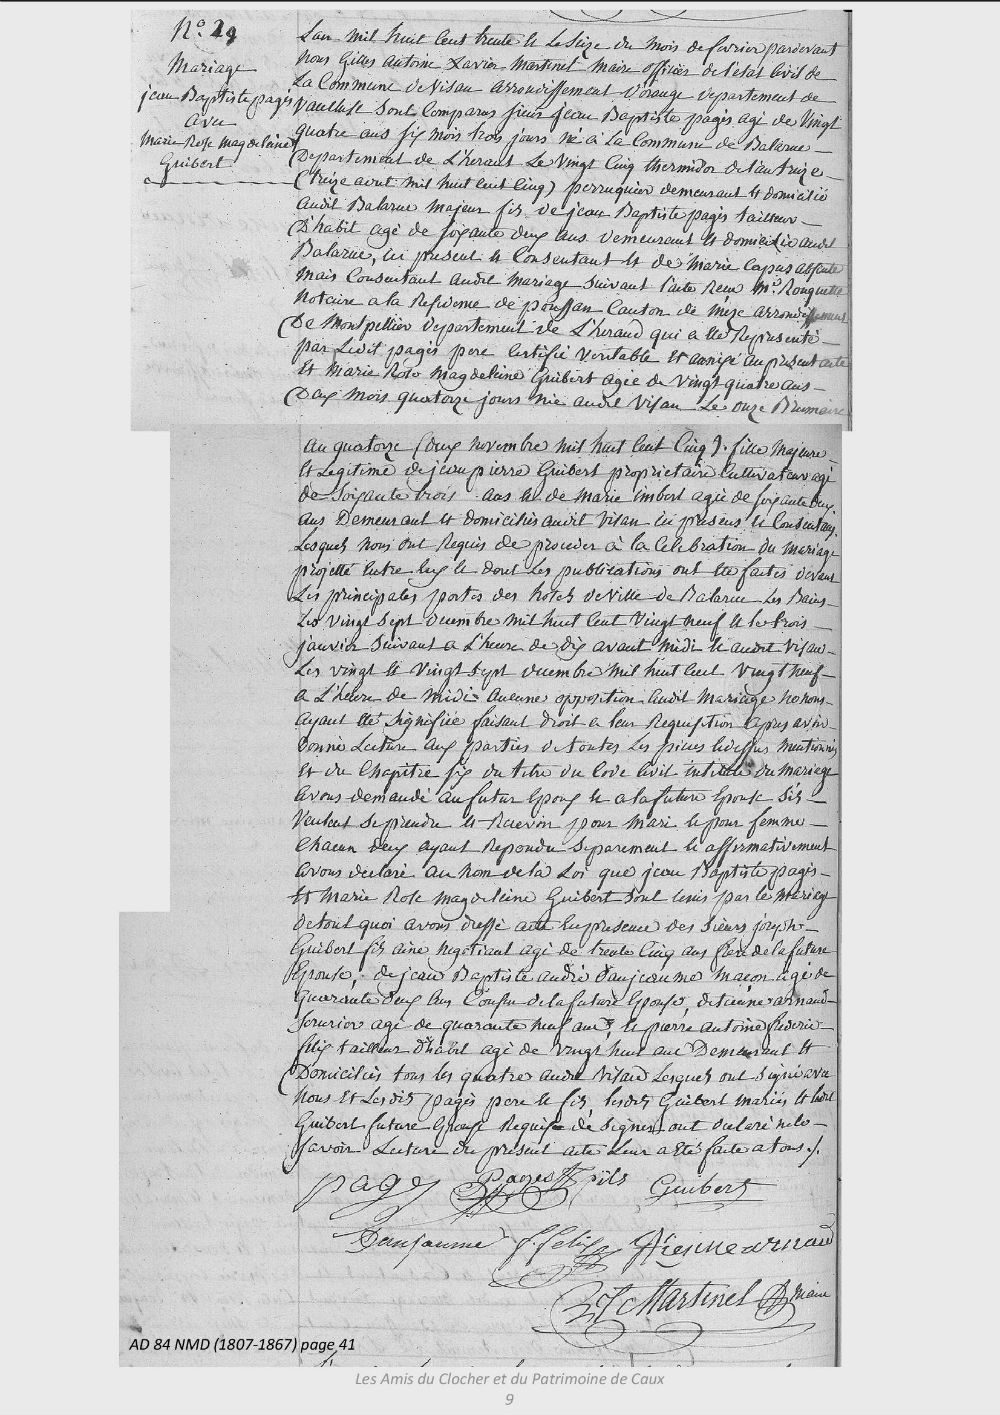 N.º 29
Mariage
jean Baptiste pagès
avec
Marie Rose magdeleine
Guibert
L'an mil huit cent trente et le seize du mois de fevrier pardevant
nous Gilles antoine Xavier Martinel maire officier de l'etat Civil de
La Commune de Visan arrondissement d'orange departement de
Vaucluse sont Comparus sieur jean Baptiste pagès agé de Vingt
quatre ans six mois trois jours né à La Commune de Balaruc
Departement de L'herault Le Vingt Cinq thermidor de l'an treize
(treize aout mil huit cent Cinq) perruquier demeurant et domicilié
audit Balaruc majeur fils de jean Baptiste pagès tailleur
D'habit agé de soixante deux ans demeurant et domicilié audit
Balaruc, ici present et Consentant et de Marie Capus absente
mais Consentant audit mariage suivant l'acte Reçu Mᵉ Rouquette
Notaire a la Residence de poussan Canton de mèze arrondissement
De Montpellier departement de L'heraud qui a été Representé
par Ledit pagès pere Certifié veritable et annexé au present acte
Et Marie Rose Magdeleine Guibert agée de Vingt quatre ans
Deux mois quatorze jours née audit Visan Le onze Brumaire
an quatorze (deux novembre mil huit cent Cinq). fille majeure
et Legitime de jean pierre Guibert proprietaire Cultivateur agé
de Soixante trois ans et de Marie imbert agée de soixante deux
ans Demeurant et domiciliés audit Visan ici présens et Consentans,
Lesquels nous ont Requis de proceder à la Celebration du mariage
projetté Entre Eux et dont Les publications ont été faites devant
Les principales portes des hotels de Ville de Balaruc Les Bains
Les vingt sept decembre mil huit Cent Vingt neuf et le trois
janvier suivant a L'heure de dix avant midi et audit Visan
Les vingt et Vingt sept decembre mil huit Cent Vingt neuf
a L'heure de midi aucune opposition audit Mariage ne nous
ayant été signifiée faisant droit a leur Requisition apres avoir
donné Lecture aux parties de toutes Les pieces cidessus mentionnées
Et du Chapitre six du titre du Code Civil intitulé du mariage
avons demandé au futur Epoux et a la future Epouse s'ils
Veulent se prendre et Recevoir pour mari et pour femme
Chacun deux ayant Repondu separement et affirmativement
avons declaré au nom de la Loi que jean Baptiste pagès
et Marie Rose magdeleine Guibert sont unis par le mariage
de tout quoi avons dressé acte En presence des sieurs joseph
Guibert fils ainé negotiant agé de trente Cinq ans frère de la future
Epouse, de jean Baptiste andré Danjaume maçon agé de
quarante deux ans Cousin de la future Epouse, d'etienne arnaud
serrurier agé de quarante neuf ans, et pierre antoine frederic
felix tailleur D'habit agé de vingt huit ans Demeurant et
Domiciliés tous les quatre audit Visan Lesquels ont signé avec
nous et Lesdits pagès pere et fils, lesdits Guibert mariés et ladite
Guibert future Epouse Requise de signer ont declaré ne le
savoir Lecture du present acte Leur a été faite a tous ./.
pages Pages fils Guibert
Danjaume f. felix Etienne arnaud
Martinel maire
AD 84 NMD (1807-1867) page 41
Les Amis du Clocher et du Patrimoine de Caux
9